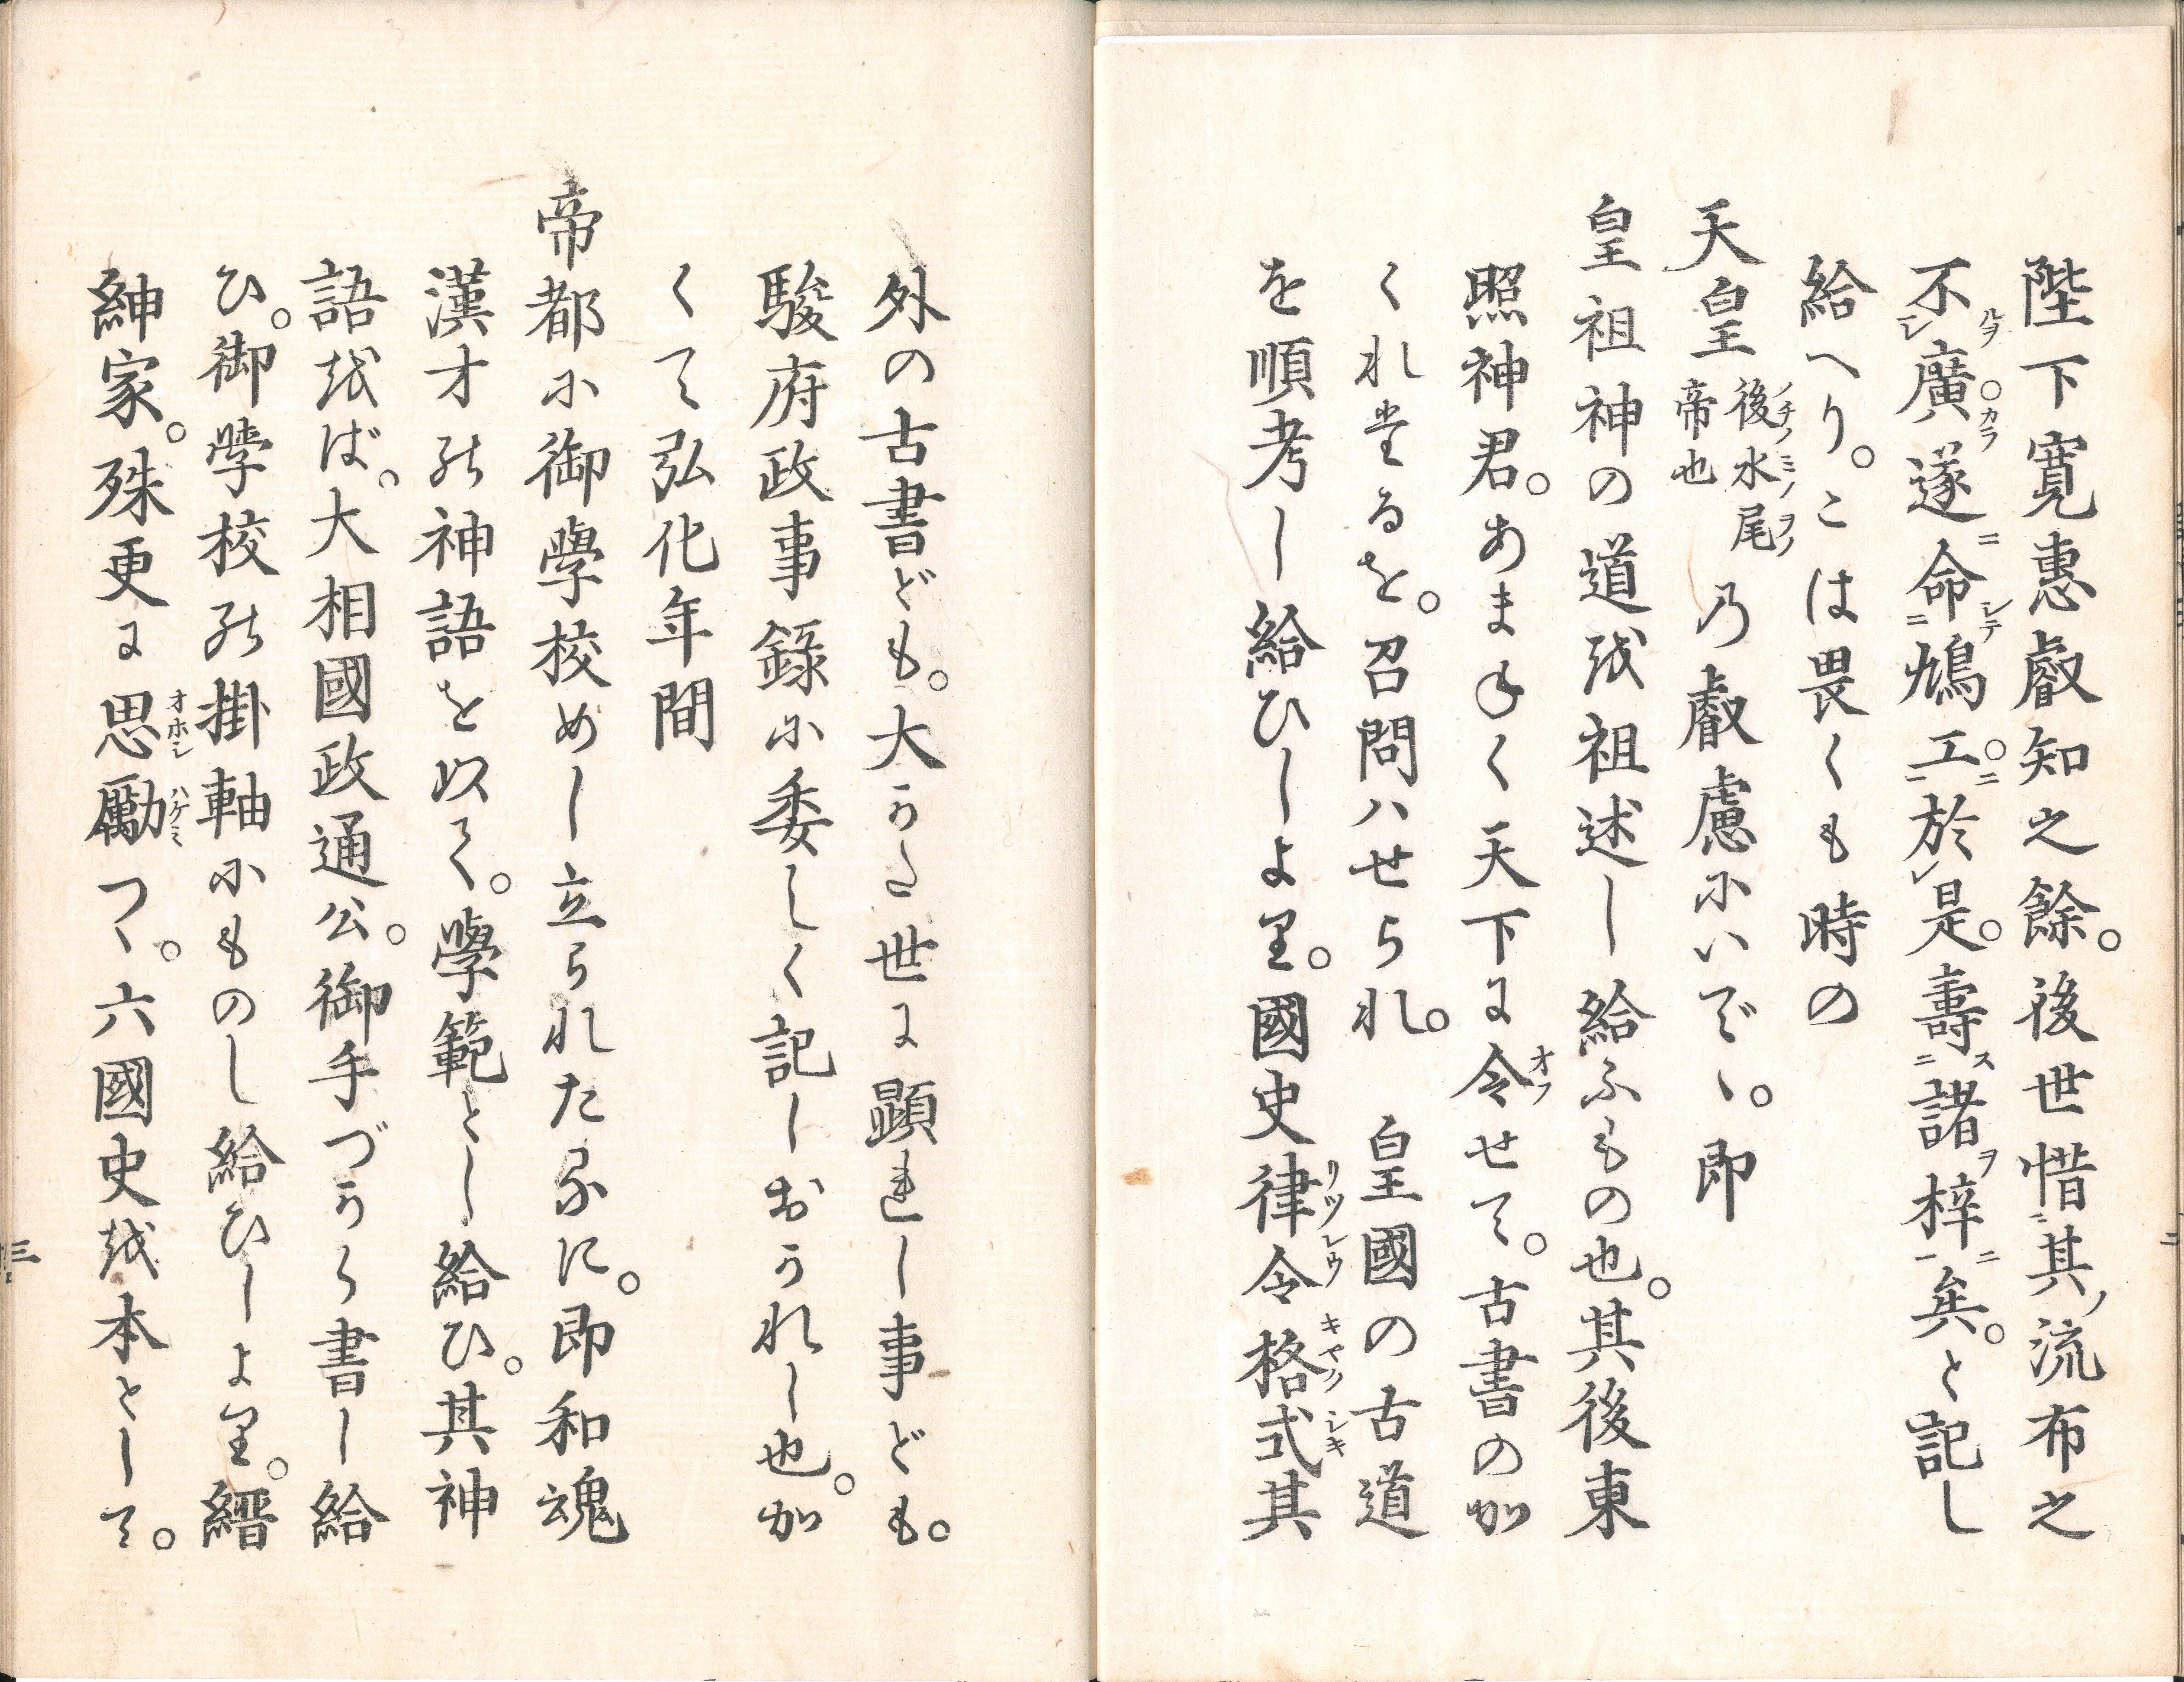 陛下寛惠叡知之餘。後世惜其ノ流布之
不廣ルヲカラ。遂ニ命シテ鳩工ニ。於是。壽ス諸ヲ梓ニ矣。と記し
給へり。こは畏くも時の
天皇後ノチノ水ミノ尾ヲノ帝也乃叡慮にいでゝ。即
皇祖神の道を祖述し給ふもの也。其後東
照神君。あまねく天下に令オフせて。古書のか
くれたるを。召問ハせられ。皇國の古道
を順考し給ひしより。國史律令リツレウ格式キヤクシキ其
外の古書ども。大かた世に顕れし事ども。
駿府政事錄に委しく記しおかれし也。か
くて弘化年間
帝都に御學校めし立られたるに。即和魂
漢才の神語を以て。學範とし給ひ。其神
語をば。大相國政通公。御手づから書し給
ひ。御學校の掛軸にものし給ひしより。縉
紳家。殊更に思オホシ勵ハケミつゝ。六國史を本として。
二
三